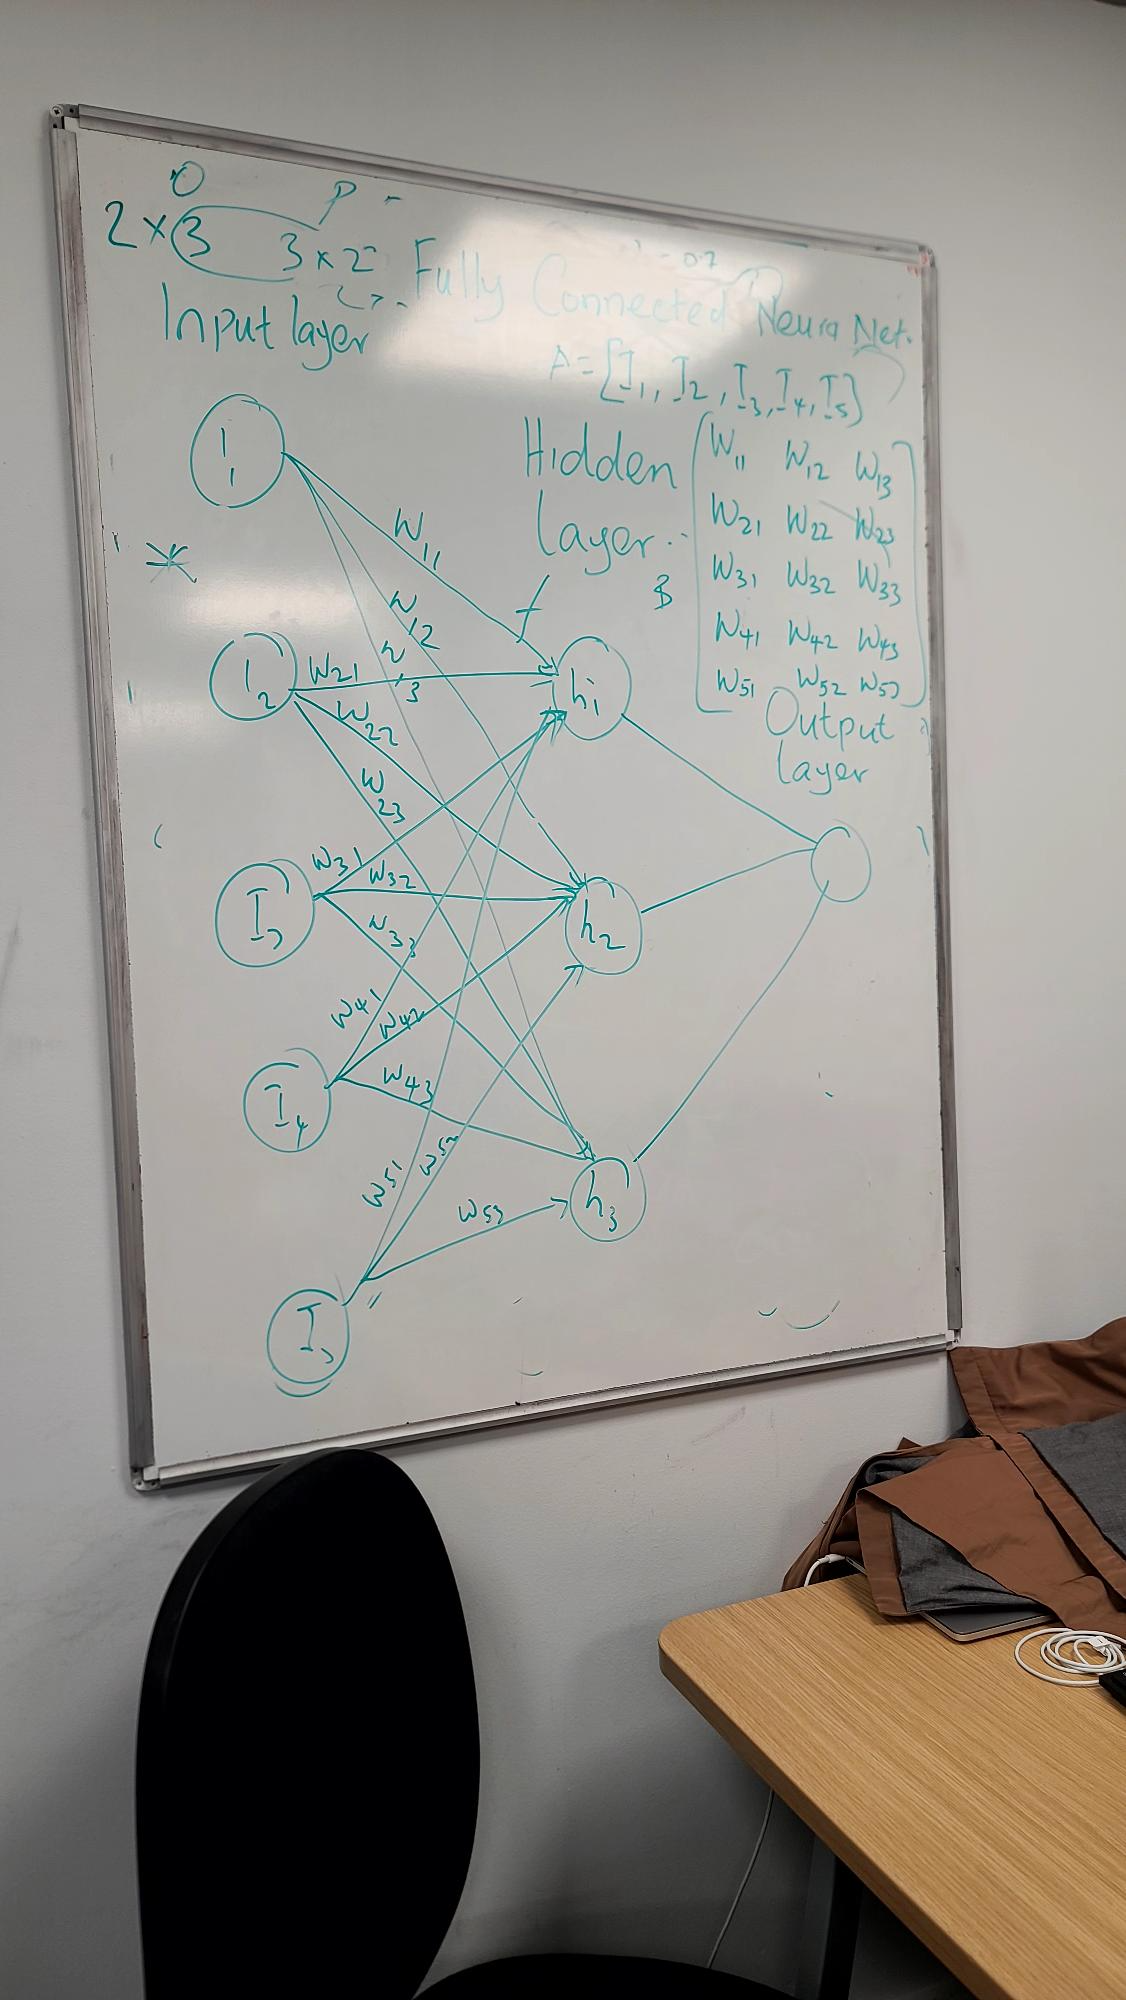 O P
2 × 3 3 × 2
Fully Connected Neura Net.
0.7
Input layer
A = [I1, I2, I3, I4, I5]
Hidden
layer
B
W11 W12 W13
W21 W22 W23
W31 W32 W33
W41 W42 W43
W51 W52 W53
Output
layer
I1
W11
W12
I2
W21
W22
W23
h1
I3
W31
W32
W33
h2
I4
W41
W42
W43
W51
W52
W53
h3